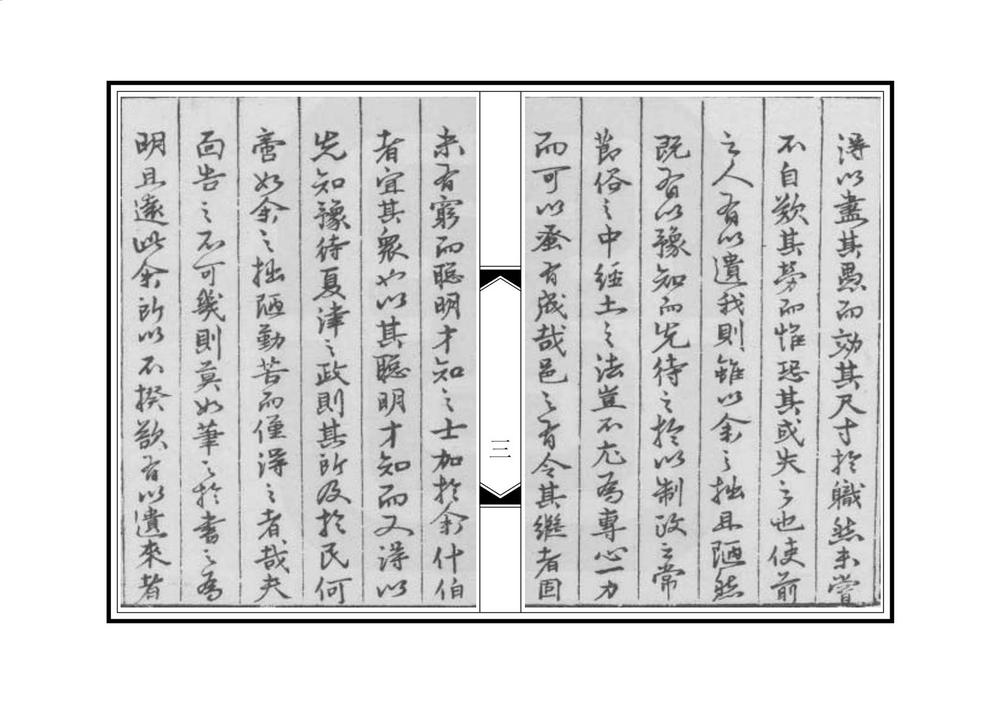 得以盡其愚而効其尺寸於職然未嘗
不自歎其勞而惟恐其或失之也使前
之人有以遺我則雖以余之拙且陋然
既有以豫知而先待之於以制政立常
節俗之中經土之法豈不尤為專心一力
而可以蚤有成哉邑之有令其繼者固
未有窮而聰明才知之士加於余什伯
者宜其衆也以其聰明才知而又得以
先知豫待夏津之政則其所及於民何
啻如余之拙陋勤苦而僅得之者哉夫
面告之不可幾則莫如筆之於書之為
明且遠此余所以不揆欲有以遺來者
三